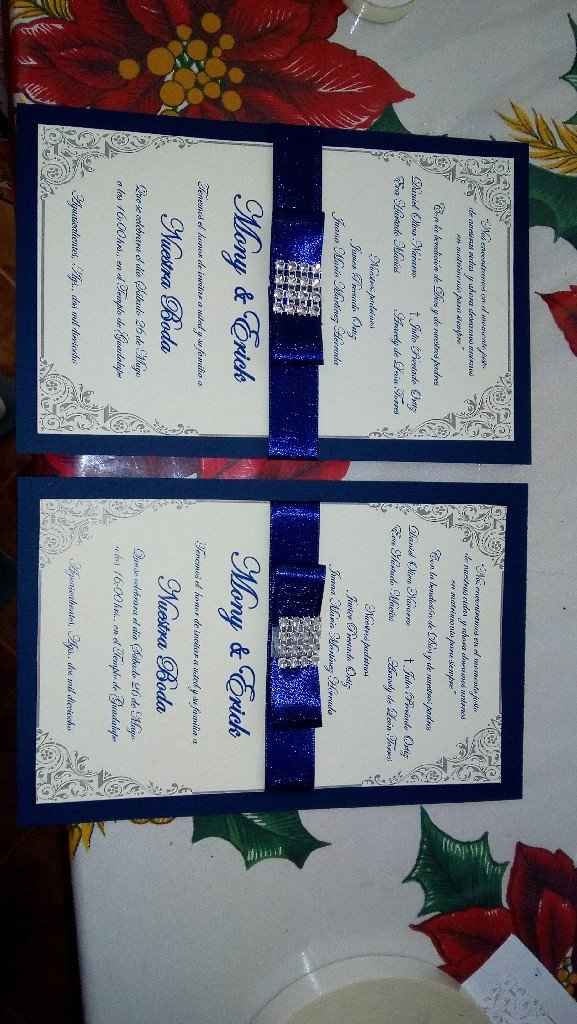 "Nos encontramos en el momento justo
de nuestras vidas y ahora deseamos unirnos
en matrimonio para siempre"
Con la bendición de Dios y de nuestros padres
Daniel Navarro † Julio Ortiz
Eva Hurtado de León Torres
Nuestros padrinos
Javier Ortiz
Juana María Martínez
Mony & Erick
Tenemos el honor de invitar a usted y su familia a
Nuestra Boda
Que se celebrara el día Sábado 26 de Mayo
a las 16:00 hrs. en el Templo de Guadalupe
Aguascalientes, Ags., dos mil dieciocho
"Nos encontramos en el momento justo
de nuestras vidas y ahora deseamos unirnos
en matrimonio para siempre"
Con la bendición de Dios y de nuestros padres
Daniel Navarro † Julio Ortiz
Eva Hurtado de León Torres
Nuestros padrinos
Javier Ortiz
Juana María Martínez
Mony & Erick
Tenemos el honor de invitar a usted y su familia a
Nuestra Boda
Que se celebrara el día Sábado 26 de Mayo
a las 16:00 hrs. en el Templo de Guadalupe
Aguascalientes, Ags., dos mil dieciocho